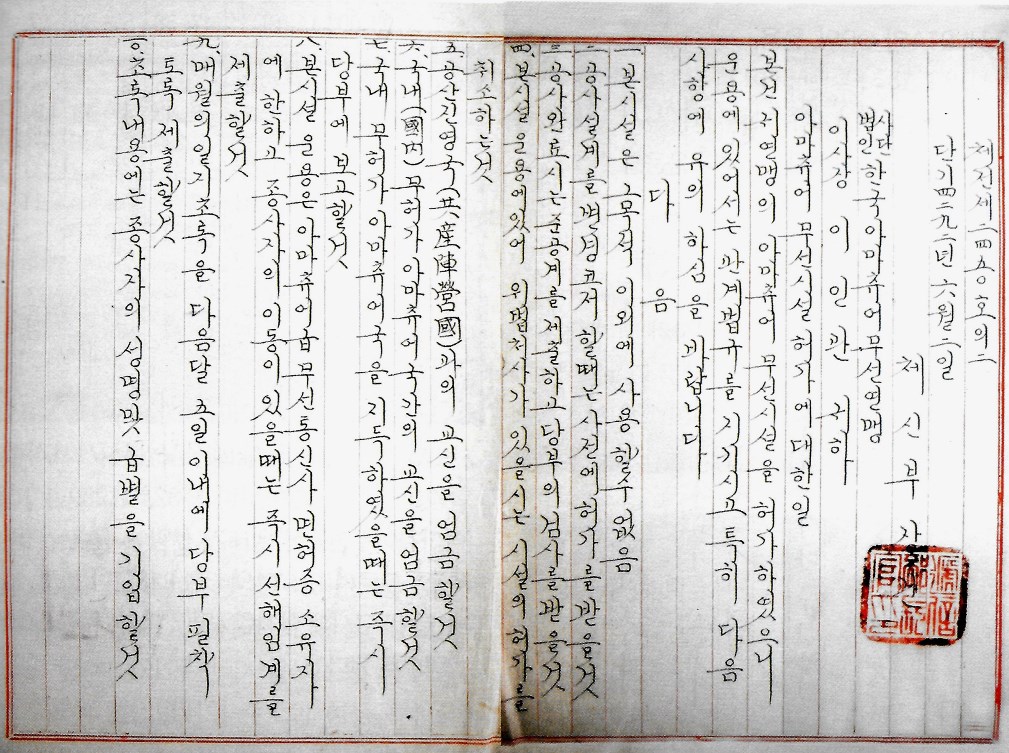 체전제二四五〇호의二
단기四二九二년 六월 二일
체신부 장관
사단법인 한국아마츄어무선연맹
이사장 이인관 귀하
아마츄어 무선시설 허가에대한일
본건 귀연맹의 아마츄어 무선시설을 허가하였으니
운용에 있어서는 관계법규를 지키시고 특히 다음
사항에 유의 하심을 바랍니다
다 음
一. 본시설은 그목적 이외에 사용할수없음
二. 공사설계를변경코저 할때는 사전에허가를받을것
三. 공사완료시는준공계를제출하고당부의검사를받을것
四. 본시설운용에있어 위법처사가 있을시는 시설의허가를
취소하는것
五. 공산진영국(共産陣營國)과의 교신을 엄금할것
六. 국내(國內)무허가 아마츄어국간의 교신을엄금할것
七. 국내 무허가 아마츄어국을 지득하였을때는 즉시
당부에 보고할것
八. 본시설 운용은 아마츄어급무선통신사 면허증 소유자
에 한하고 종사자의 이동이 있을때는 즉시 선해임계를
제출할것
九. 매월의일지초록을 다음달 五일이내에당부 필착
토록 제출할것
一〇. 초록내용에는 종사자의 성명및 급별을기입할것